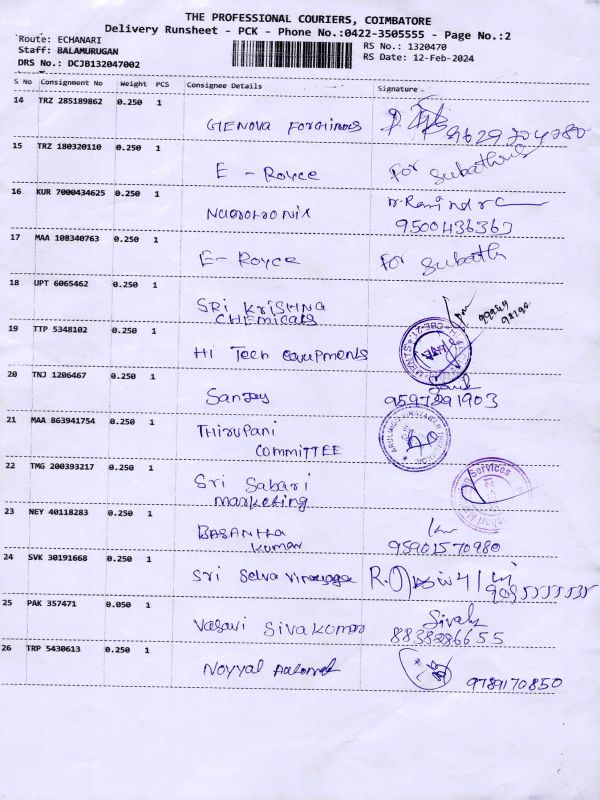 THE PROFESSIONAL COURIERS, COIMBATORE
Delivery Runsheet - PCK - Phone No.:0422-3505555 - Page No.:2
Route: ECHANARI
RS No.: 1320470
Staff: BALAMURUGAN
RS Date: 12-Feb-2024
DRS No.: DCJB132047002
S No Consignment No Weight PCS Consignee Details Signature
14 TRZ 285189862 0.250 1
GENOVA FORGINGS 9629204080
15 TRZ 180320110 0.250 1
E - Royce For Subathra
16 KUR 7000434625 0.250 1
9500436363
17 MAA 108340763 0.250 1
E - Royce For Subath
18 UPT 6065462 0.250 1
SRI KRISHNA
CHEMICALS
19 TTP 5348102 0.250 1
Hi Tech equipments
20 TNJ 1206467 0.250 1
Sanjay 9597291903
21 MAA 863941754 0.250 1
THIRUPANI
COMMITTEE
22 TMG 200393217 0.250 1
Sri Sabari
marketing
Services
23 NEY 40118283 0.250 1
BASANTHA
Kumar 95901570980
24 SVK 30191668 0.250 1
Sri Selva Vinayaga
25 PAK 357471 0.050 1
Vasavi Sivakumar
8838286655
26 TRP 5430613 0.250 1
Noyyal
9789170850